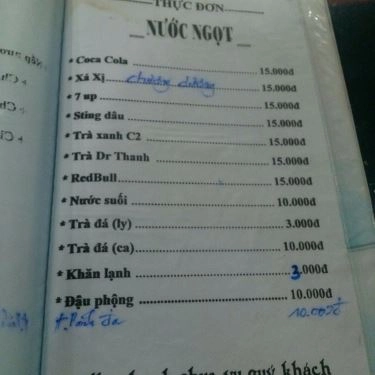 THỰC ĐƠN
NƯỚC NGỌT
* Coca Cola 15.000đ
* Xá Xị chương dương 15.000đ
* 7 up 15.000đ
* Sting dâu 15.000đ
* Trà xanh C2 15.000đ
* Trà Dr Thanh 15.000đ
* RedBull 15.000đ
* Nước suối 10.000đ
* Trà đá (ly) 3.000đ
* Trà đá (ca) 10.000đ
* Khăn lạnh 3.000đ
* Đậu phộng 10.000đ
* Bánh đa 10.000đ
quý khách